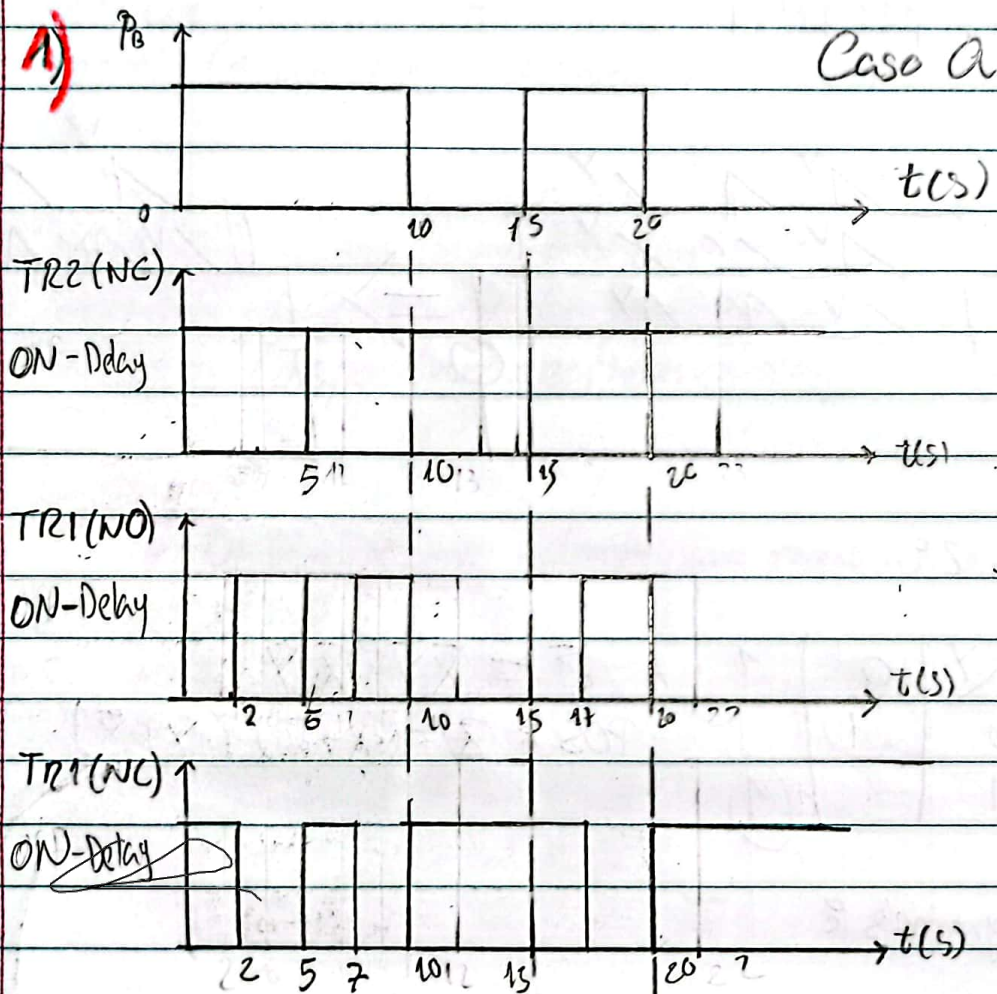 1) PB Caso a
t(s)
0 10 15 20
TR2 (NC)
ON-Delay
t(s)
5 11 10 13 15 20
TR1 (NO)
ON-Delay
t(s)
2 5 7 10 15 17 20 22
TR1 (NC)
ON-Delay
t(s)
2 5 7 10 12 15 20 22